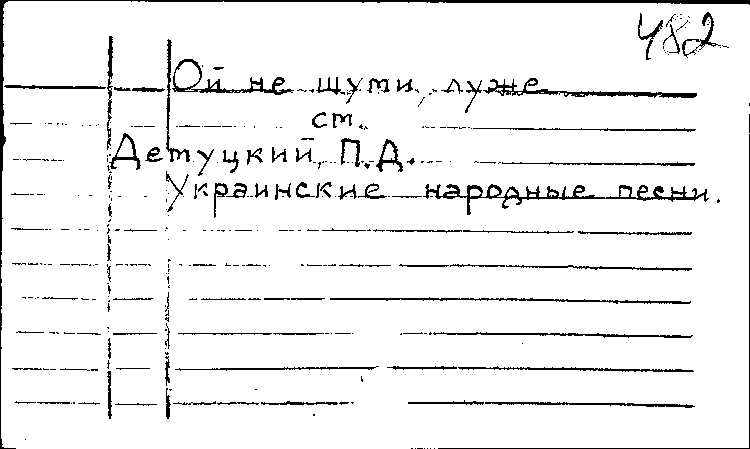 482
Ой не шуми, луже
ст.
Демуцкий, П.Д.
Украинские народные песни.